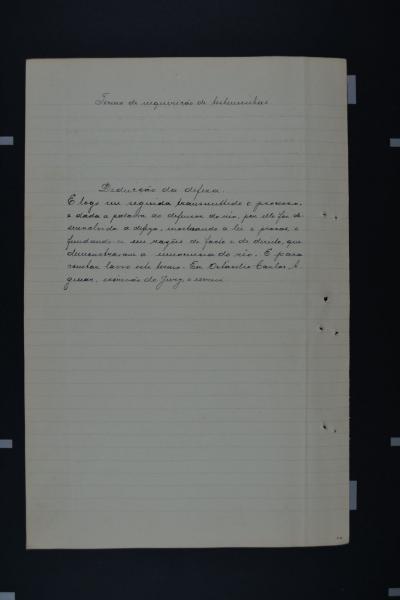 Termo de inquirição de testemunhas
Deducção da defeza.
E logo em seguida transmittido o processo,
e dada a palavra ao defensor do réo, por elle foi de-
senvolvida a defeza, mostrando a lei e provas, e
fundando-se em razões de facto e de direito, que
demonstraram a innocencia do réo. E para
constar lavro este termo. Eu Orlando Carlos
escrivão do Jury, o escrevi